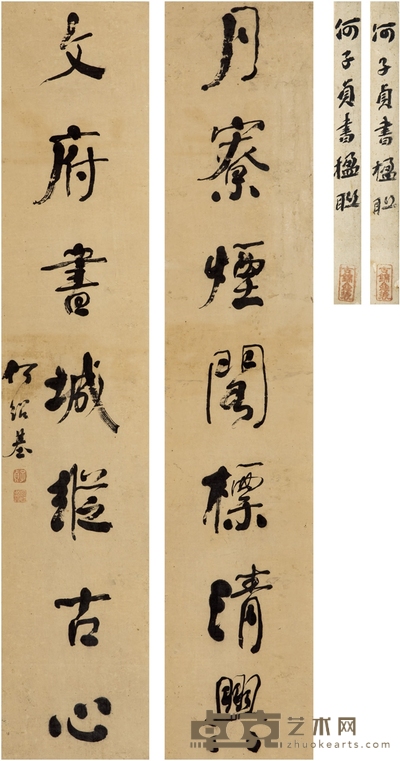 月寮煙閣標清興
文府書城縱古心
何紹基
何子貞書楹聯
何子貞書楹聯
卓克艺术网
www.zhuokearts.com